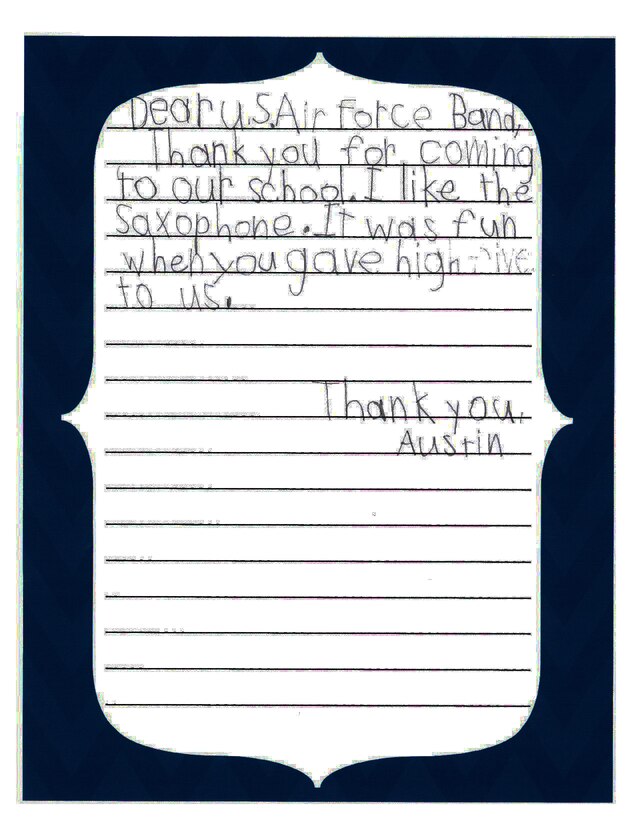 Dear U.S.Air Force Band,
Thank you for coming
to our school. I like the
Saxophone. It was fun
when you gave high-five
to us.
Thank you,
Austin